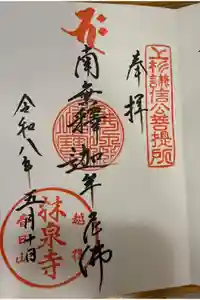 奉拝
上杉謙信公菩提所
南無釋迦牟尼佛
令和八年五月十日
越後
春日山
林泉寺